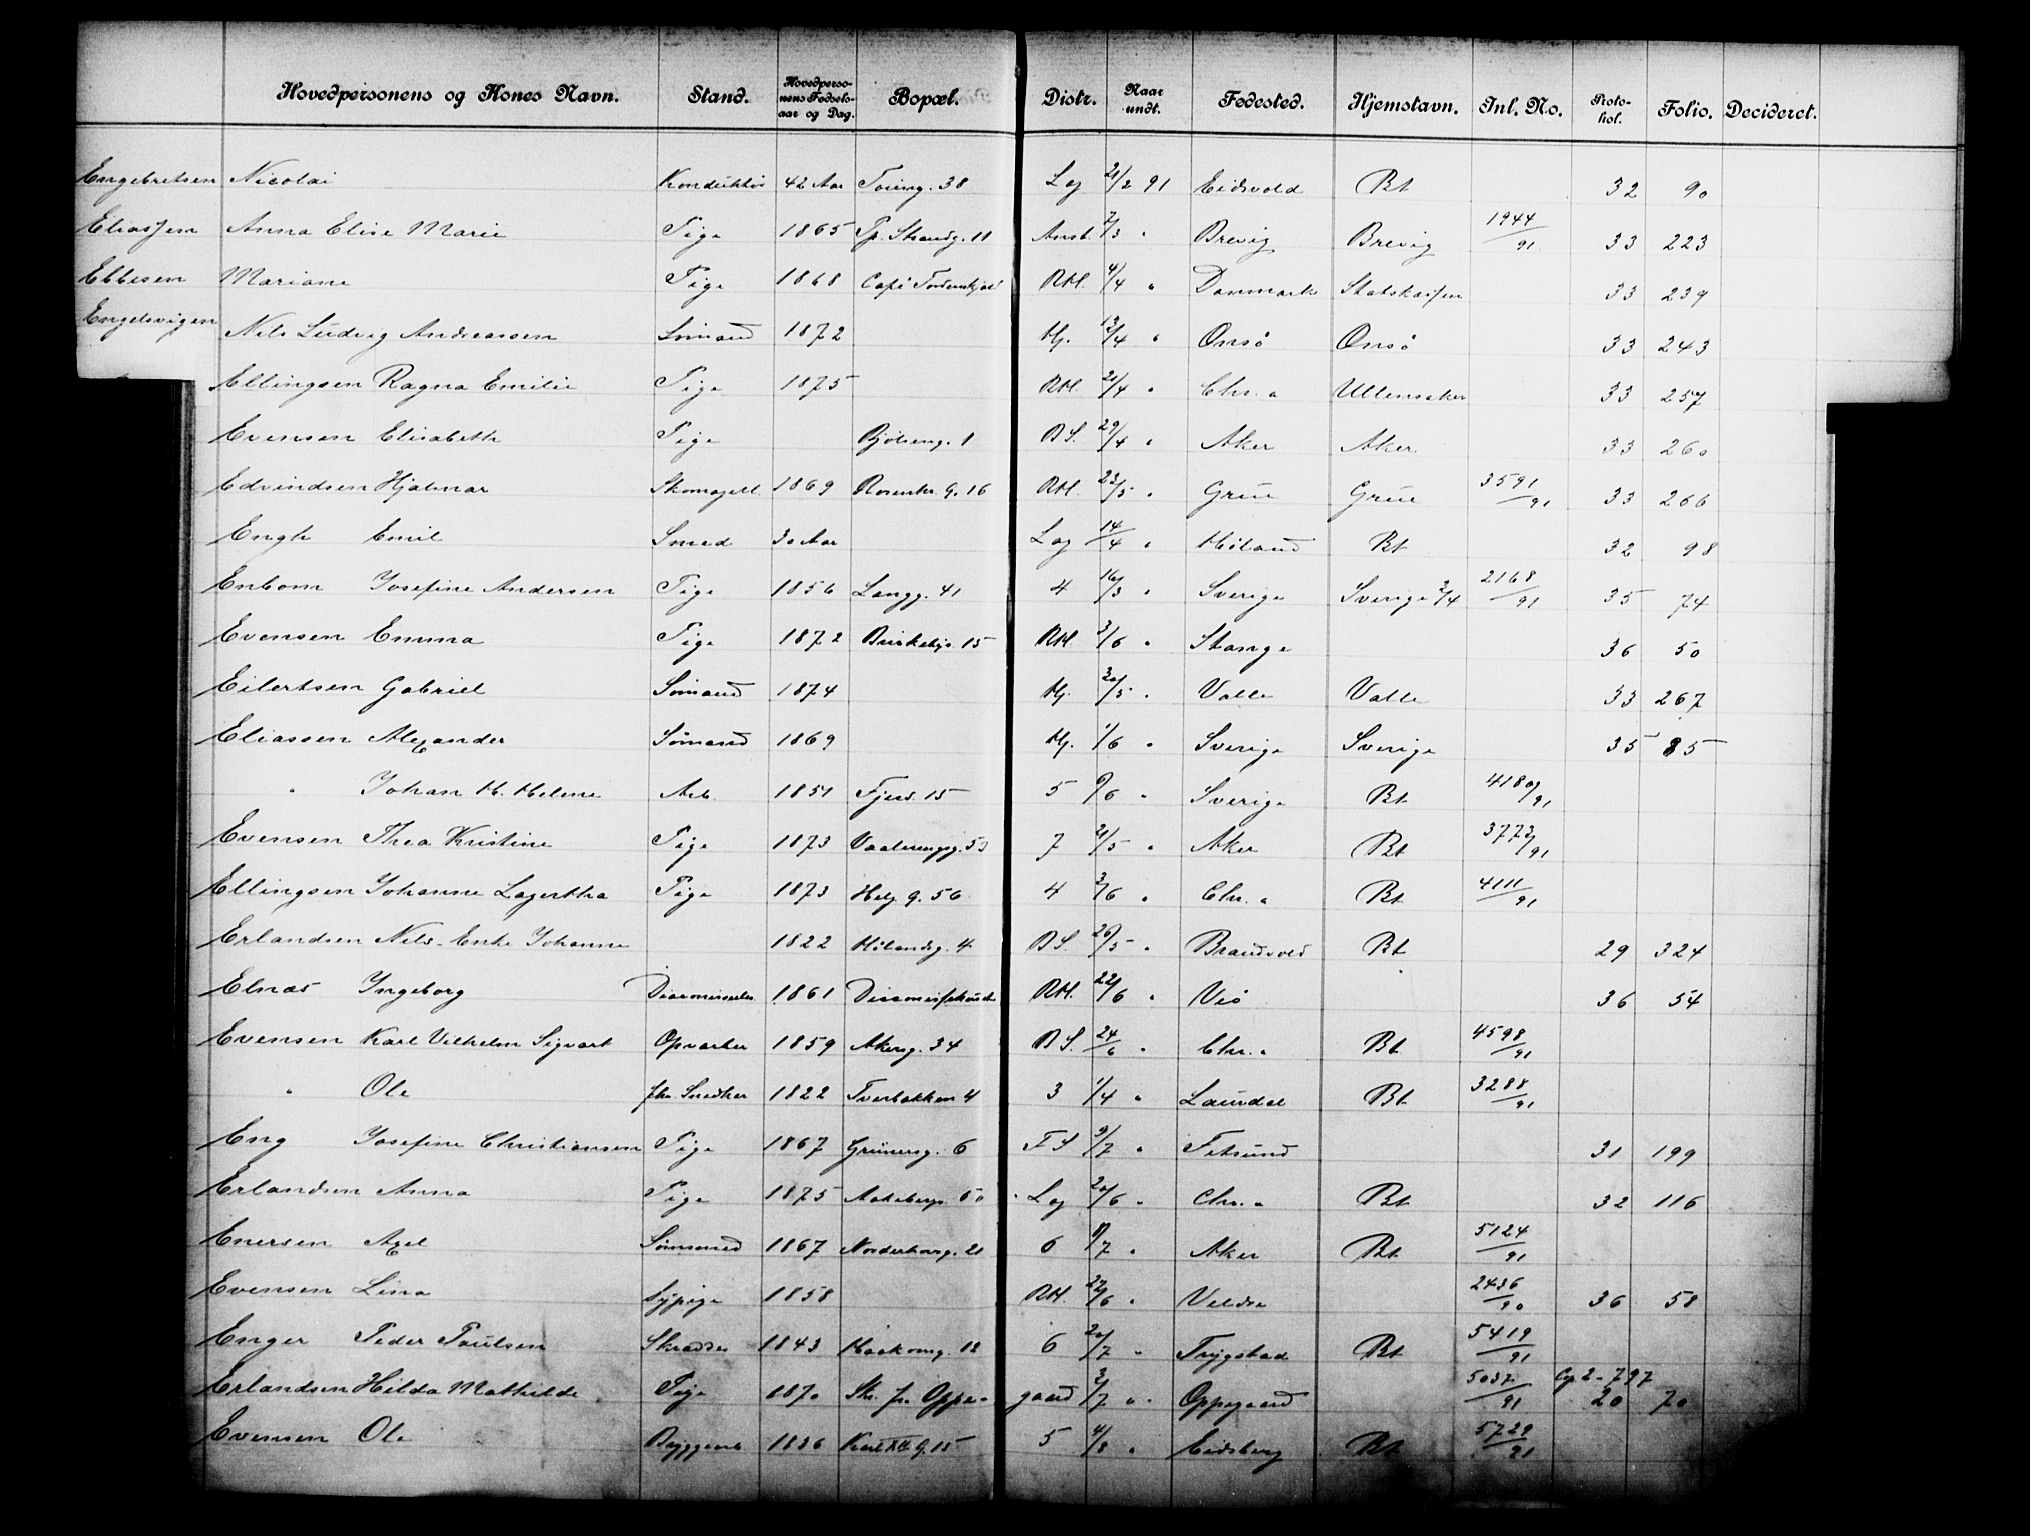 Hovedpersonens og Kones Navn. Stand. Hovedperso-nens Fødsels-aar og Dag. Bopæl. Distr. Naar undt. Fødested. Hjemstavn. Inl. No. Proto-kol. Folio. Decideret.
Engebretsen Nicolai Konduktør 42 Aar Toieng. 38 Log 21/2 91 Eidsvold Bt 32 90
Eliassen Anna Elise Marie Pige 1865 Tp. Strandg. 11 Anst. 7/3 " Brevig Brevig 1944/91 33 223
Ebbesen Mariane Pige 1868 Café Tordenskjold RH. 4/4 " Danmark Statskassen 33 239
Engelsvigen Nils Ludvig Andreassen Sømand 1872 Hj. 13/4 " Onsø Onsø 33 243
Ellingsen Ragna Emilie Pige 1875 RH. 21/4 " Chr.a Ullensaker 33 257
Evensen Elisabeth Pige Bjølseng. 1 BS. 29/4 " Aker Aker 33 260
Edvindsen Hjalmar Skomagerl. 1869 Rosenkr. G. 16 RH. 23/5 " Grue Grue 3591/91 33 266
Engh Emil Smed 30 Aar Log 14/4 " Høland Bt 32 98
Enbom Josefine Andersen Pige 1856 Langg. 41 4 16/3 " Sverige Sverige 2/4 2168/91 35 74
Evensen Emma Pige 1872 Birkebg. 15 RH. 3/6 " Stange 36 50
Eilertsen Gabriel Sømand 1874 Hj. 30/5 " Valle Valle 33 267
Eliassen Alexander Sømand 1869 Hj. 1/6 " Sverige Sverige 35 85
" Johan H. Helene Arb. 1851 Fjerd. 15 5 9/6 " Sverige Bt 4180/91
Evensen Thea Kristine Pige 1873 Vaalerengg. 53 7 21/5 " Aker Bt 3773/91
Ellingsen Johanne Lagertha Pige 1873 Helg. G. 56 4 3/6 " Chr.a Bt 4111/91
Erlandsen Nils - Enke Johanne 1822 Hølandsg. 4 BS. 26/5 " Brandvold Bt 29 324
Elnæs Ingeborg 1861 RH. 22/6 " Veø 36 54
Evensen Karl Vilhelm Sigvart Opvarter 1859 Akersg. 34 BS. 24/6 " Chr.a Bt 4598/91
" Ole fhv. Snedker 1822 Tverbakken 4 3 1/4 " Laurdal Bt 3288/91
Eng Josefine Christiansen Pige 1867 Grünersg. 6 FS 9/7 " Fetsund 31 199
Erlandsen Anna Pige 1875 Aakebergv. 50 Log 20/6 " Chr.a Bt 32 116
Enersen Axel Sømmand 1867 Norderhovsg. 21 6 8/7 " Aker Bt 5124/91
Evensen Lina Sypige 1858 RH. 27/6 " Veldre 2436/90 36 58
Enger Peder Paulsen Skrædder 1843 Haakonsg. 12 6 20/7 " Trygstad Bt 5419/91
Erlandsen Hilda Mathilde Pige 1870 St. pr. Oppe-gaard 2/7 " Oppegaard 5037/91 Cp. 2 - 797 20 70
Evensen Ole Bryggearb 1836 Karl XII G. 15 5 4/8 " Eidsberg Bt 5729/91